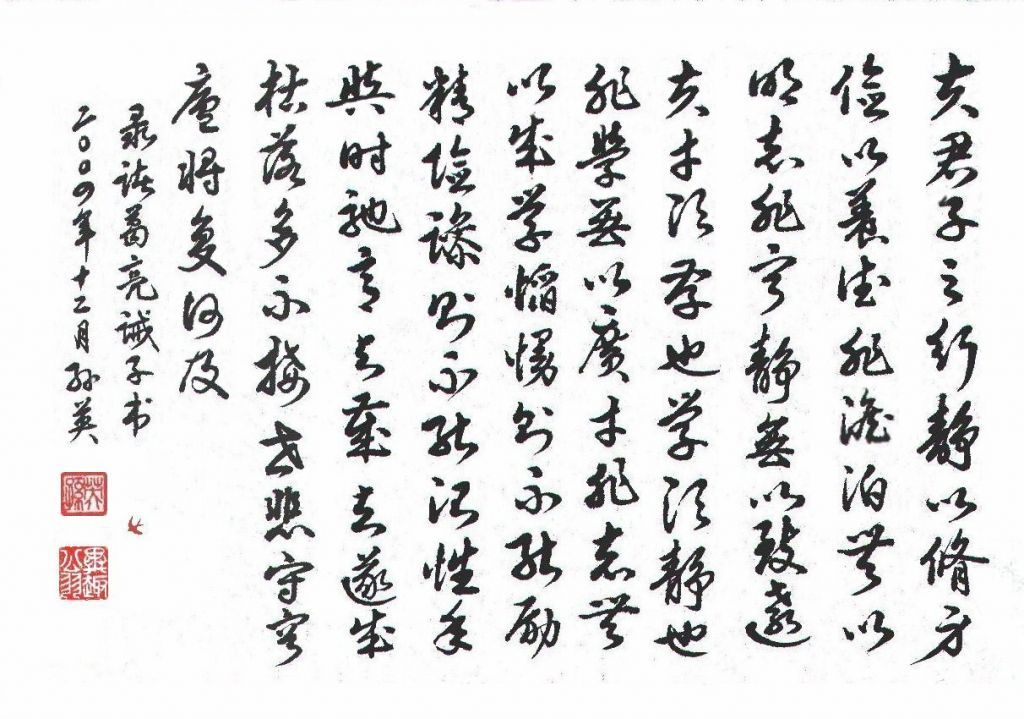 夫君子之行静以脩身
俭以养德非澹泊无以
明志非宁静无以致遠
夫才须学也学须静也
非學無以廣才非志无
以成学慆慢则不能励
精险躁则不能治性年
與时驰意与歲去遂成
枯落多不接世悲守穷
廬將复何及
录诸葛亮诫子书
二〇〇四年十二月孙英